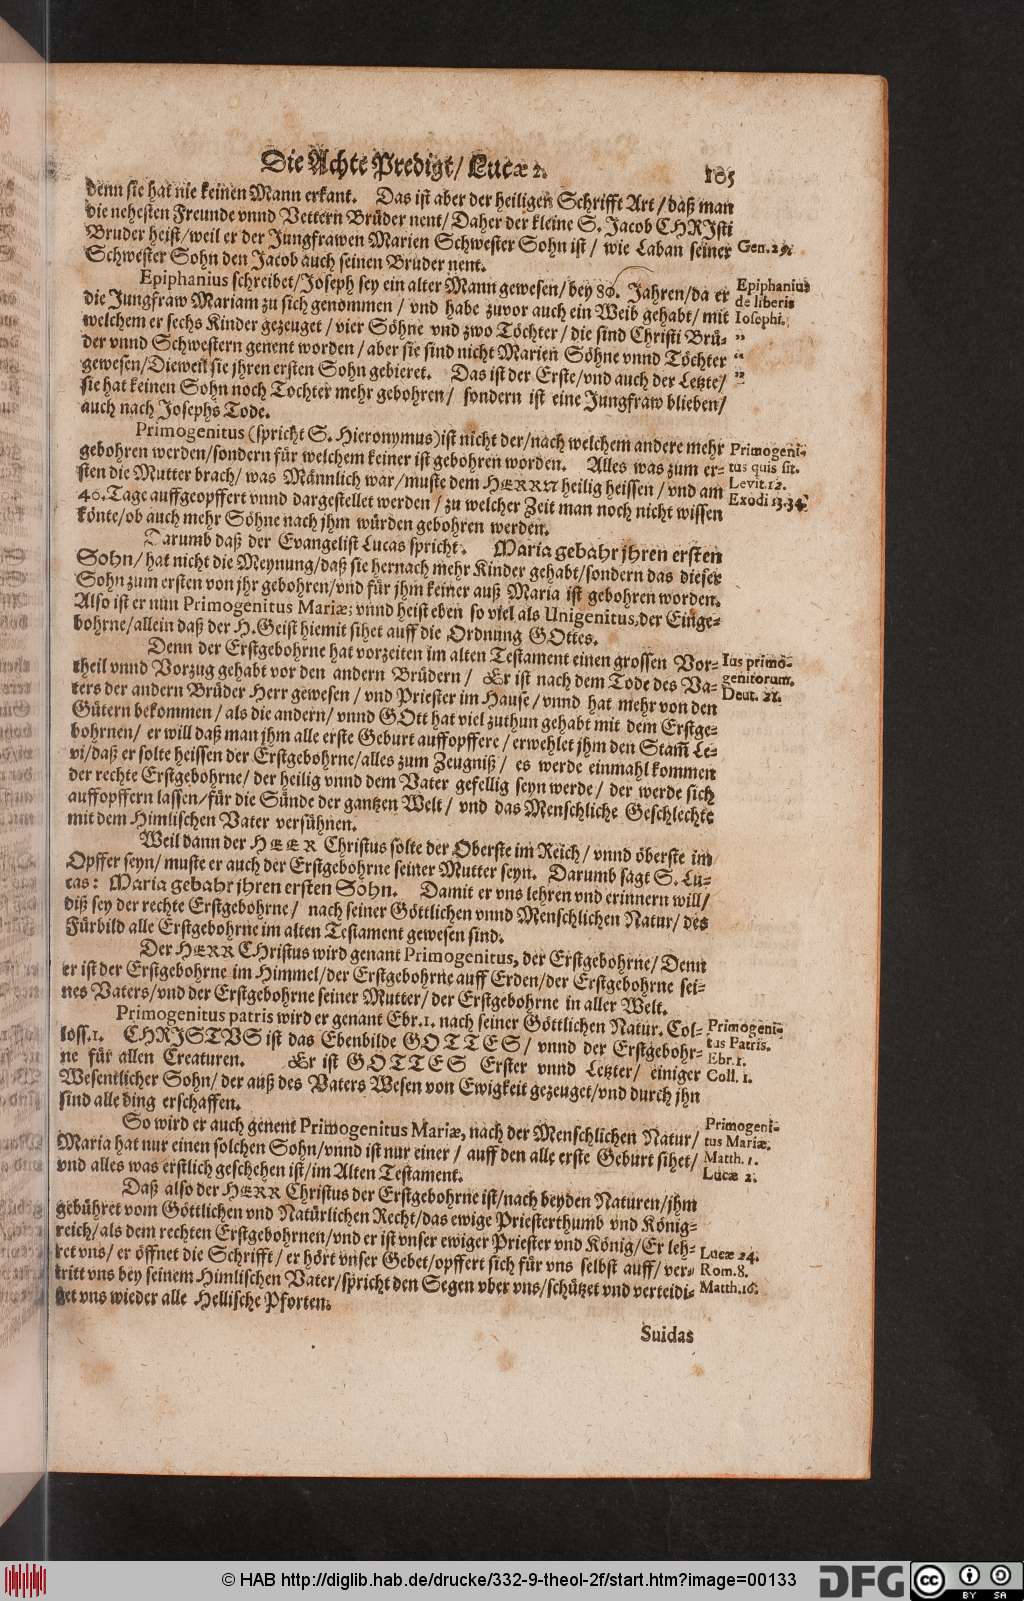 Die Achte Predigt/ Lucæ 2. 105
denn sie hat nie keinen Mann erkant. Das ist aber der heiligen Schrifft Art/ daß man
die nehesten Freunde vnnd Vettern Brüder nent/ Daher der kleine S. Jacob CHRIsti
Bruder heist/ weil er der Jungfrawen Marien Schwester Sohn ist/ wie Laban seiner Gen. 29.
Schwester Sohn den Jacob auch seinen Bruder nent.
Epiphanius schreibet/ Joseph sey ein alter Mann gewesen/ bey 80. Jahren/ da er Epiphanius
die Jungfraw Mariam zu sich genommen/ vnd habe zuvor auch ein Weib gehabt/ mit de liberis
welchem er sechs Kinder gezeuget/ vier Söhne vnd zwo Töchter/ die sind Christi Brü- Iosephi.
der vnnd Schwestern genent worden/ aber sie sind nicht Marien Söhne vnnd Töchter
gewesen/ Dieweil sie jhren ersten Sohn gebieret. Das ist der Erste/ vnd auch der Letzte/
sie hat keinen Sohn noch Tochter mehr gebohren/ sondern ist eine Jungfraw blieben/
auch nach Josephs Tode.
Primogenitus (spricht S. Hieronymus) ist nicht der/ nach welchem andere mehr Primogeni-
gebohren werden/ sondern für welchem keiner ist gebohren worden. Alles was zum er- tus quis sit.
sten die Mutter brach/ was Männlich war/ muste dem HERRN heilig heissen/ vnd am Levit. 12.
40. Tage auffgeopffert vnnd dargestellet werden/ zu welcher Zeit man noch nicht wissen Exodi 13.34.
könte/ ob auch mehr Söhne nach jhm würden gebohren werden.
Darumb daß der Evangelist Lucas spricht: Maria gebahr jhren ersten
Sohn/ hat nicht die Meynung/ daß sie hernach mehr Kinder gehabt/ sondern das dieser
Sohn zum ersten von jhr gebohren/ vnd für jhm keiner auß Maria ist gebohren worden.
Also ist er nun Primogenitus Mariæ; vnnd heist eben so viel als Unigenitus, der Einge-
bohrne/ allein daß der H. Geist hiemit sihet auff die Ordnung GOttes.
Denn der Erstgebohrne hat vorzeiten im alten Testament einen grossen Vor- Ius primo-
theil vnnd Vorzug gehabt vor den andern Brüdern/ Er ist nach dem Tode des Va- genitorum.
ters der andern Brüder Herr gewesen/ vnd Priester im Hause/ vnnd hat mehr von den Deut. 21.
Gütern bekommen/ als die andern/ vnnd GOtt hat viel zuthun gehabt mit dem Erstge-
bohrnen/ er will daß man jhm alle erste Geburt auffopffere/ erwehlet jhm den Stam̃ Le-
vi/ daß er solte heissen der Erstgebohrne/ alles zum Zeugniß/ es werde einmahl kommen
der rechte Erstgebohrne/ der heilig vnnd dem Vater gefellig seyn werde/ der werde sich
auffopffern lassen/ für die Sünde der gantzen Welt/ vnd das Menschliche Geschlechte
mit dem Himlischen Vater versühnen.
Weil dann der HEER Christus solte der Oberste im Reich/ vnnd öberste im
Opffer seyn/ muste er auch der Erstgebohrne seiner Mutter seyn. Darumb sagt S. Lu-
cas: Maria gebahr jhren ersten Sohn. Damit er vns lehren vnd erinnern will/
diß sey der rechte Erstgebohrne/ nach seiner Göttlichen vnnd Menschlichen Natur/ des
Fürbild alle Erstgebohrne im alten Testament gewesen sind.
Der HERR CHristus wird genant Primogenitus, der Erstgebohrne/ Denn
er ist der Erstgebohrne im Himmel/ der Erstgebohrne auff Erden/ der Erstgebohrne sei-
nes Vaters/ vnd der Erstgebohrne seiner Mutter/ der Erstgebohrne in aller Welt.
Primogenitus patris wird er genant Ebr. 1. nach seiner Göttlichen Natur. Col- Primogeni-
loss. 1. CHRISTVS ist das Ebenbilde GOTTES/ vnnd der Erstgebohr- tus Patris.
ne für allen Creaturen. Er ist GOTTES Erster vnnd Letzter/ einiger Ebr. 1.
Wesentlicher Sohn/ der auß des Vaters Wesen von Ewigkeit gezeuget/ vnd durch jhn Coll. 1.
sind alle ding erschaffen.
So wird er auch genent Primogenitus Mariæ, nach der Menschlichen Natur/ Primogeni-
Maria hat nur einen solchen Sohn/ vnnd ist nur einer/ auff den alle erste Geburt sihet/ tus Mariæ.
vnd alles was erstlich geschehen ist/ im Alten Testament. Matth. 1.
Lucæ 2.
Daß also der HERR Christus der Erstgebohrne ist/ nach beyden Naturen/ jhm
gebühret vom Göttlichen vnd Natürlichen Recht/ das ewige Priesterthumb vnd König-
reich/ als dem rechten Erstgebohrnen/ vnd er ist vnser ewiger Priester vnd König/ Er leh-
ret vns/ er öffnet die Schrifft/ er hört vnser Gebet/ opffert sich für vns selbst auff/ ver- Lucæ 24.
tritt vns bey seinem Himlischen Vater/ spricht den Segen vber vns/ schützet vnd verteidi- Rom. 8.
get vns wieder alle Hellische Pforten. Matth. 16.
Suidas
© HAB http://diglib.hab.de/drucke/332-9-theol-2f/start.htm?image=00133
DFG
cc BY SA